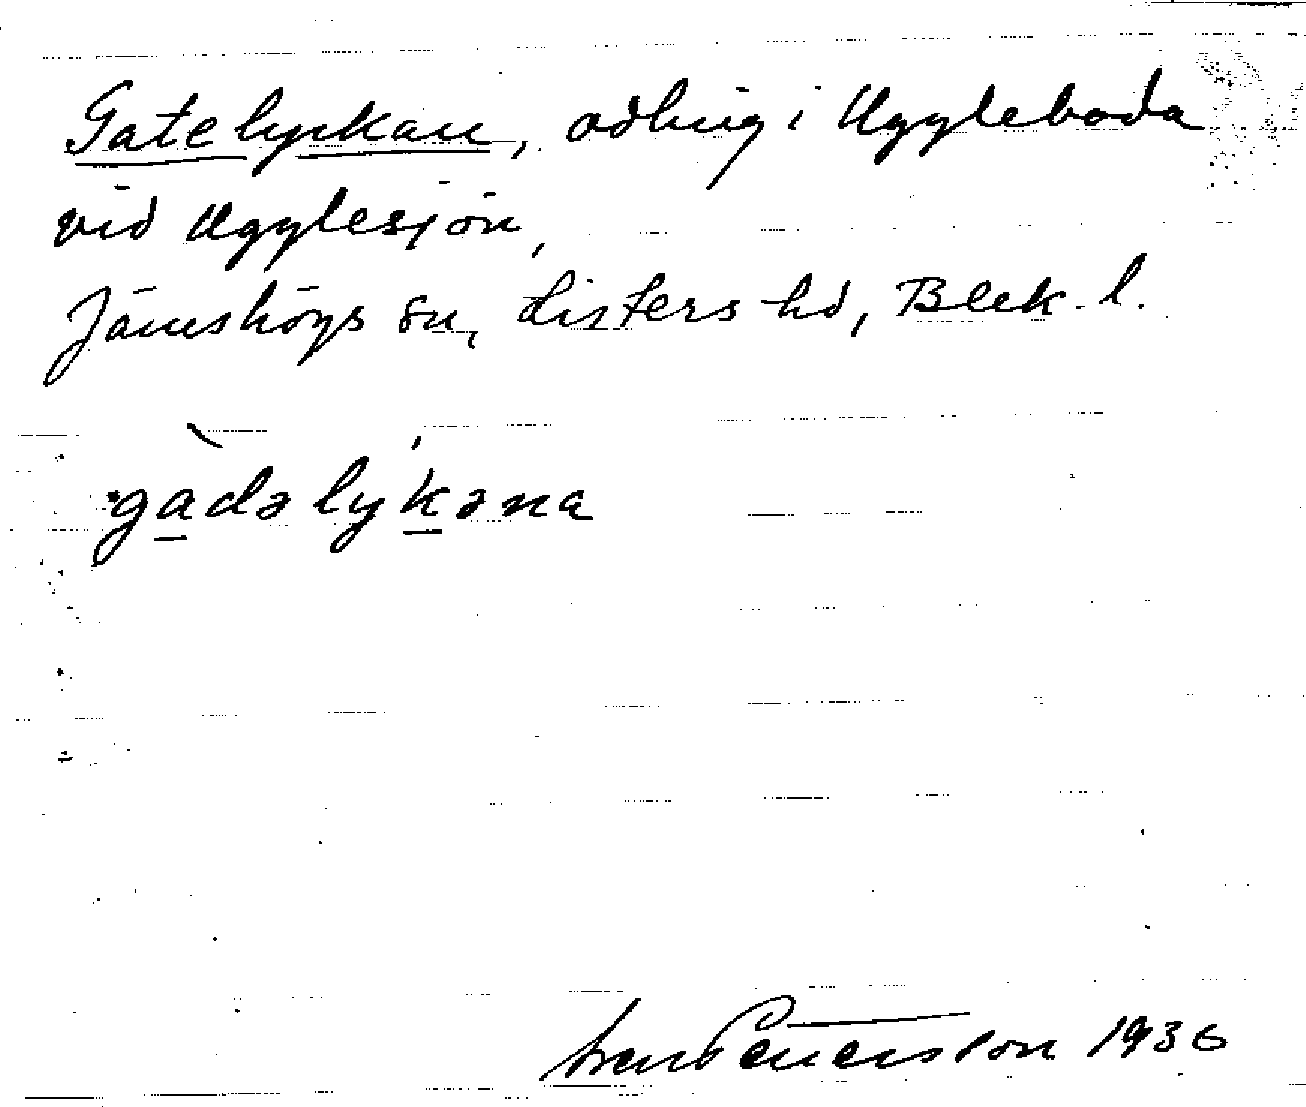 Gatelyckan, odling i Uggleboda
vid Ugglesjön,
Jämshögs sn, Listers hd, Blek. l.
gàdəlýkəna
Pettersson 1936